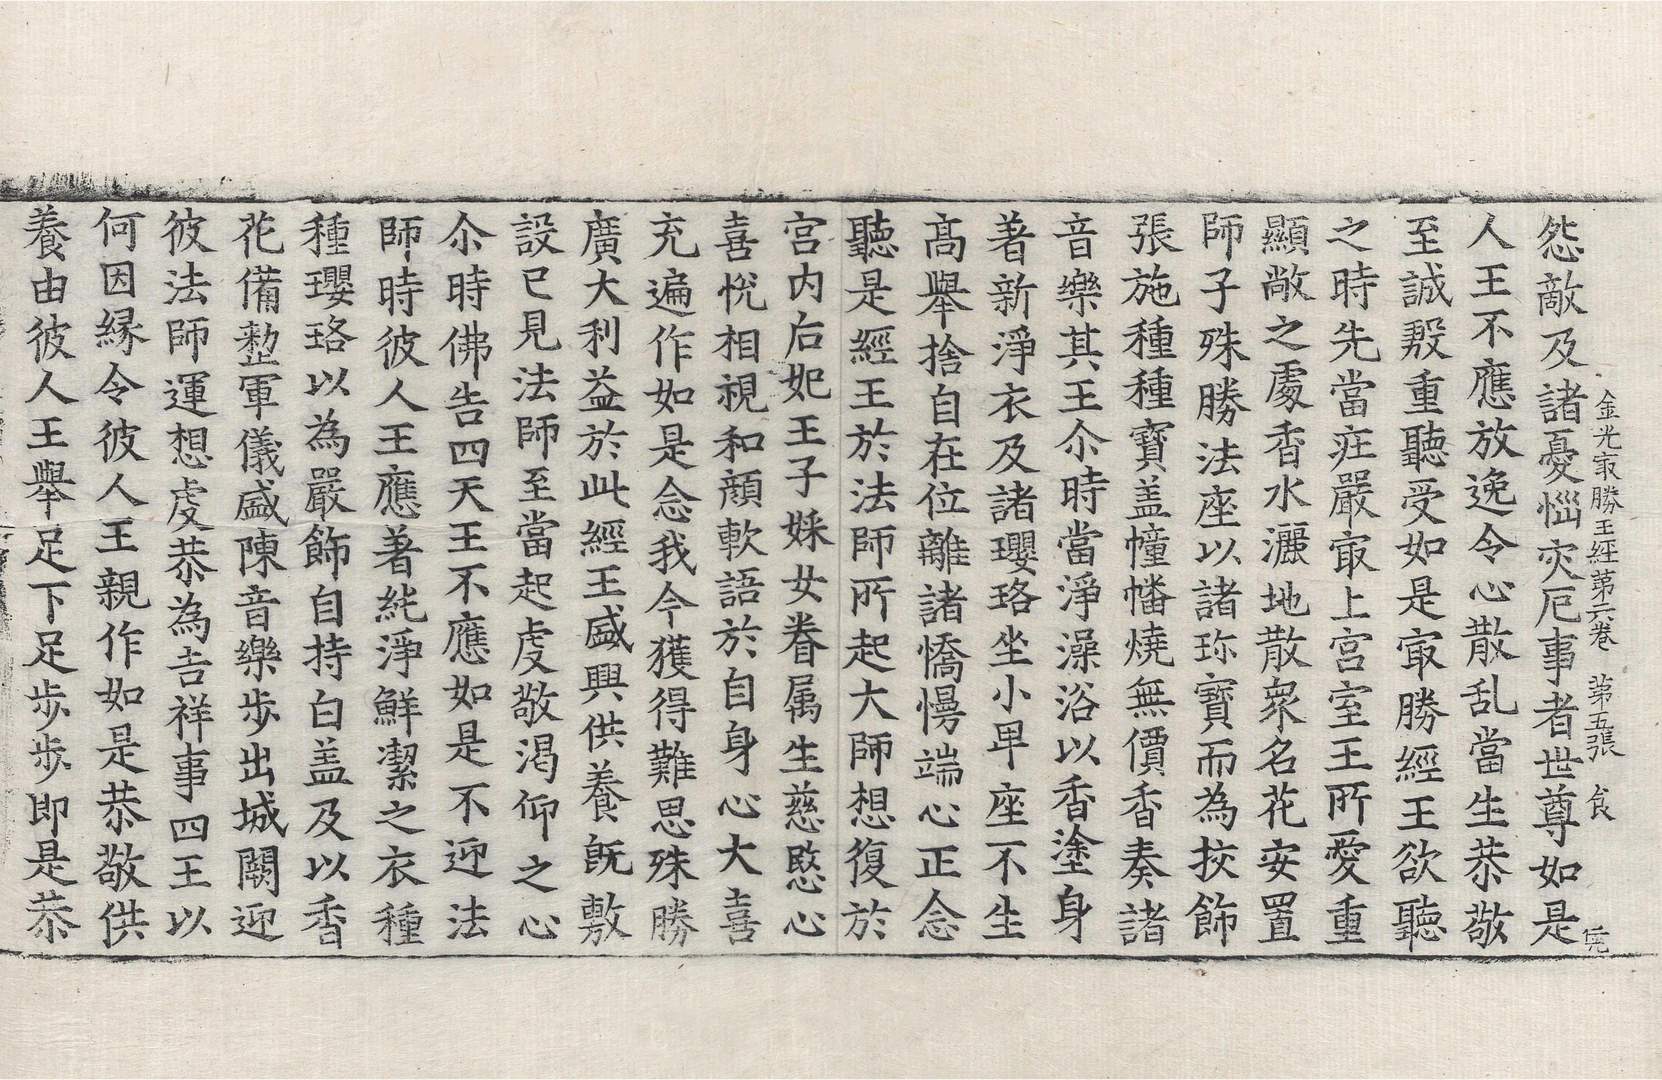 怨敵及諸憂惱灾厄事者世尊如是
金光㝡勝王經第六卷　第五張　食
人王不應放逸令心散乱當生恭敬
至誠殷重聽受如是㝡勝經王欲聽
之時先當疘嚴㝡上宮室王所愛重
顯敞之處香水灑地散衆名花安置
師子殊勝法座以諸珎寶而為挍飾
張施種種寶盖幢幡燒無價香奏諸
音樂其王尒時當淨澡浴以香塗身
著新淨衣及諸瓔珞坐小卑座不生
高舉捨自在位離諸憍慢端心正念
聽是經王於法師所起大師想復於
宮内后妃王子婇女眷属生慈愍心
喜悅相視和顔軟語於自身心大喜
充遍作如是念我今獲得難思殊勝
廣大利益於此經王盛興供養旣敷
設已見法師至當起虔敬渴仰之心
尒時佛告四天王不應如是不迎法
師時彼人王應著純淨鮮潔之衣種
種瓔珞以為嚴飾自持白盖及以香
花備整軍儀盛陳音樂步出城闕迎
彼法師運想虔恭為吉祥事四王以
何因緣令彼人王親作如是恭敬供
養由彼人王舉足下足步步即是恭